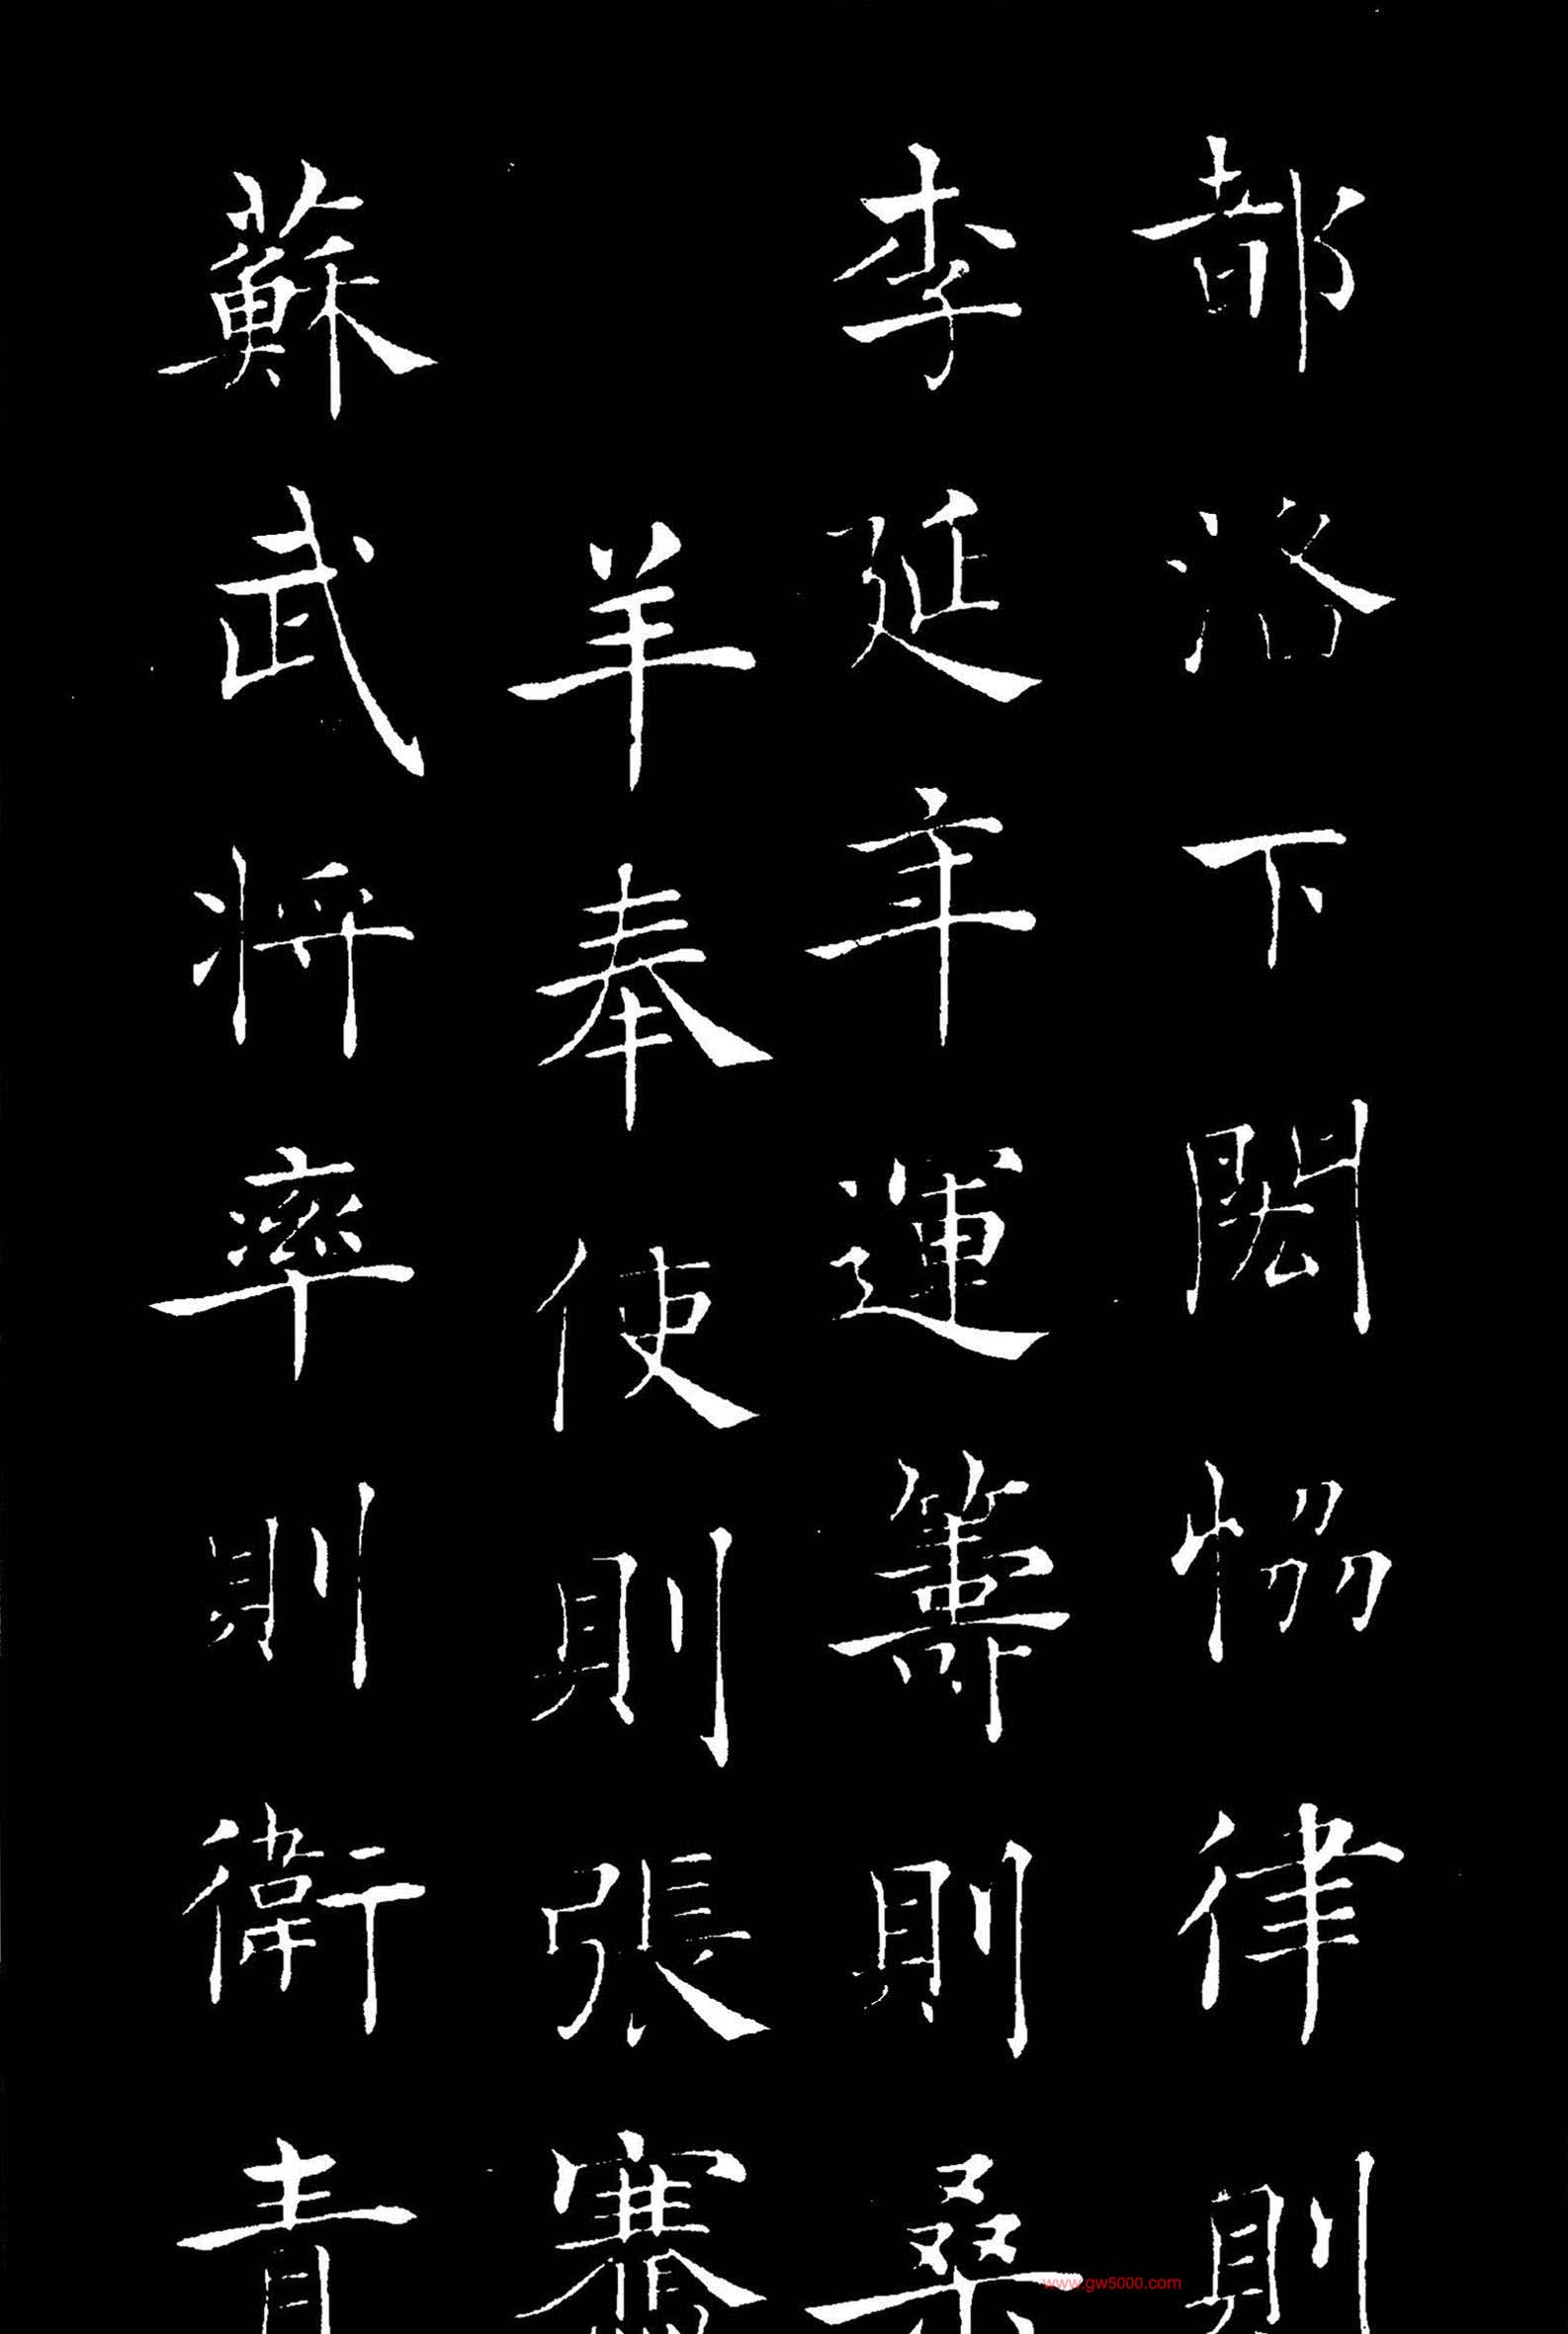 都洛下閎恊律則
李延年運籌則桑
羊奉使則張騫
蘇武将率則衛青
www.gw5000.com